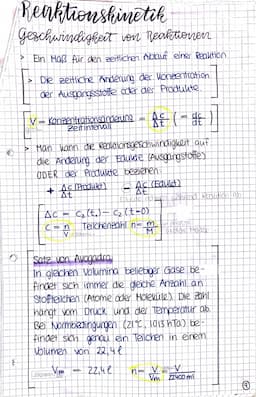 Reaktionskinetik
Geschwindigkeit von Reaktionen
> Ein Maß für den zeitlichen Ablauf einer Reaktion
> Die zeitliche Änderung der Konzentration
der Ausgangsstoffe oder der Produkte.
V = Konzentrationsänderung / Zeitintervall = Δc/Δt (= dc/dt)
> Man kann die Reaktionsgeschwindigkeit auf
die Änderung der Edukte (Ausgangsstoffe)
ODER der Produkte beziehen:
+ Δc (Produkt) / Δt - Δc (Edukt) / Δt
Δc = c₂(t₁) - c₂(t=0)
c = n/V Teilchenzahl n = m/M
Satz von Avogadro
In gleichen Volumina beliebiger Gase be-
findet sich immer die gleiche Anzahl an
Stoffteilchen (Atome oder Moleküle). Die Zahl
hängt vom Druck und der Temperatur ab.
Bei Normbedingungen (21°C, 1013 hPa) be-
findet sich genau ein Teilchen in einem
Volumen von 22,4 l
Vm = 22,4 l n = V/Vm = V/22400 ml